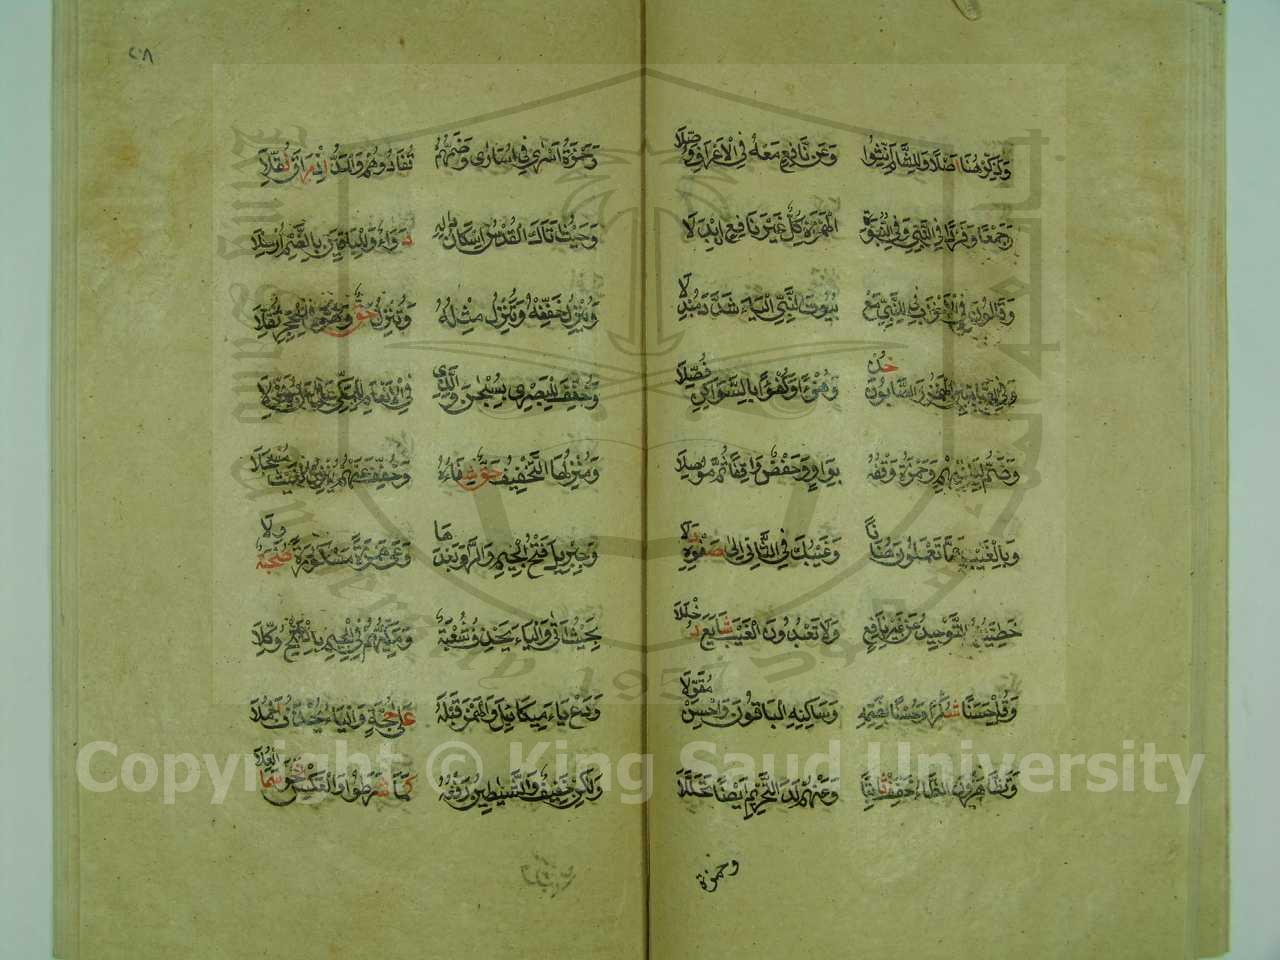 وَذَكِّرْ هُنَا أَصْلًا وَلِلشَّامِ أَنَّثُوا وَعَنْ نَافِعٍ مَعْهُ فِي الْأَعْرَافِ وُصِّلَا
وَجَمْعًا وَفَرْدًا فِي النَّبِي وَفِي النُّبُوءَةِ الْهَمْزَ كُلٌّ غَيْرَ نَافِعٍ ابْدَلَا
وَقَالُونَ فِي الْأَحْزَابِ فِي لِلنَّبِيِّ مَعْ بُيُوتَ النَّبِيِّ الْيَاءَ شَدَّدَ مُبْدِلَا
وَفِي الصَّابِئِينَ الْهَمْزَ وَالصَّابِئُونَ خُذْ وَهُزْءًا وَكُفْؤًا بِالسَّوَاكِنِ فُصِّلَا
وَضُمَّ لِبَاقِيهِمْ وَحَمْزَةُ وَقْفُهُ بِوَاوٍ وَحَفْصٌ وَاقِفًا ثُمَّ مُوصِلَا
وَبِالْغَيْبِ عَمَّا تَعْمَلُونَ هُنَا دَنَا وَغَيْبُكَ فِي الثَّانِي إِلَى صَفْوِهِ دَلَا
خَطِيئَتُهُ التَّوْحِيدُ عَنْ غَيْرِ نَافِعٍ وَلَا تَعْبُدُونَ الْغَيْبَ شَايَعَ دُخْلُلَا
وَقُلْ حَسَنًا شُكْرًا وَحُسْنًا بِضَمِّهِ وَسَاكِنِهِ الْبَاقُونَ وَاحْسِنْ مُقَوِّلَا
وَتَظَّاهَرُونَ الظَّاءُ خُفِّفَ ثَابِتًا وَعَنْهُمْ لَدَى التَّحْرِيمِ أَيْضًا تَحَلَّلَا
وحمزة
٢٠٨
وَحَمْزَةُ أَسْرَى فِي أُسَارَى وَضَمُّهُمْ تُفَادُوهُمُ وَالْمَدُّ إِذْ رَاقَ نُفِّلَا
وَحَيْثُ أَتَاكَ الْقُدْسُ إِسْكَانُ دَالِهِ دَوَاءٌ وَلِلْبَاقِينَ بِالضَّمِّ أُرْسِلَا
وَيُنْزِلُ خَفِّفْهُ وَتُنْزِلُ مِثْلُهُ وَنُنْزِلُ حَقٌّ وَهْوَ فِي الْحِجْرِ ثُقِّلَا
وَخُفِّفَ لِلْبَصْرِي بِسُبْحَانَ وَالَّذِي فِي الْأَنْعَامِ لِلْمَكِّي عَلَى أَنْ يُنَزِّلَا
وَمُنْزِلُهَا التَّخْفِيفُ حَقٌّ شِفَاءُهُ وَخُفِّفَ عَنْهُمْ يُنْزِلُ الْغَيْثَ مُسْجَلَا
وَجِبْرِيلَ فَتْحُ الْجِيمِ وَالرَّا وَبَعْدَهَا وَعَى هَمْزَةً مَكْسُورَةً صُحْبَةٌ وِلَا
بِحَيْثُ أَتَى وَالْيَاءَ يَحْذِفُ شُعْبَةٌ وَمَكِّيُّهُمْ فِي الْجِيمِ بِالْفَتْحِ وُكِّلَا
وَدَعْ يَاءَ مِيكَائِيلَ وَالْهَمْزَ قَبْلَهُ عَلَى حُجَّةٍ وَالْيَاءُ يُحْذَفُ أَجْمَلَا
وَلَكِنْ خَفِيفٌ وَالشَّيَاطِينُ رَفْعُهُ كَمَا شَرَطُوا وَالْعَكْسُ نَحْوٌ سَمَا الْعُلَا
Copyright © King Saud University